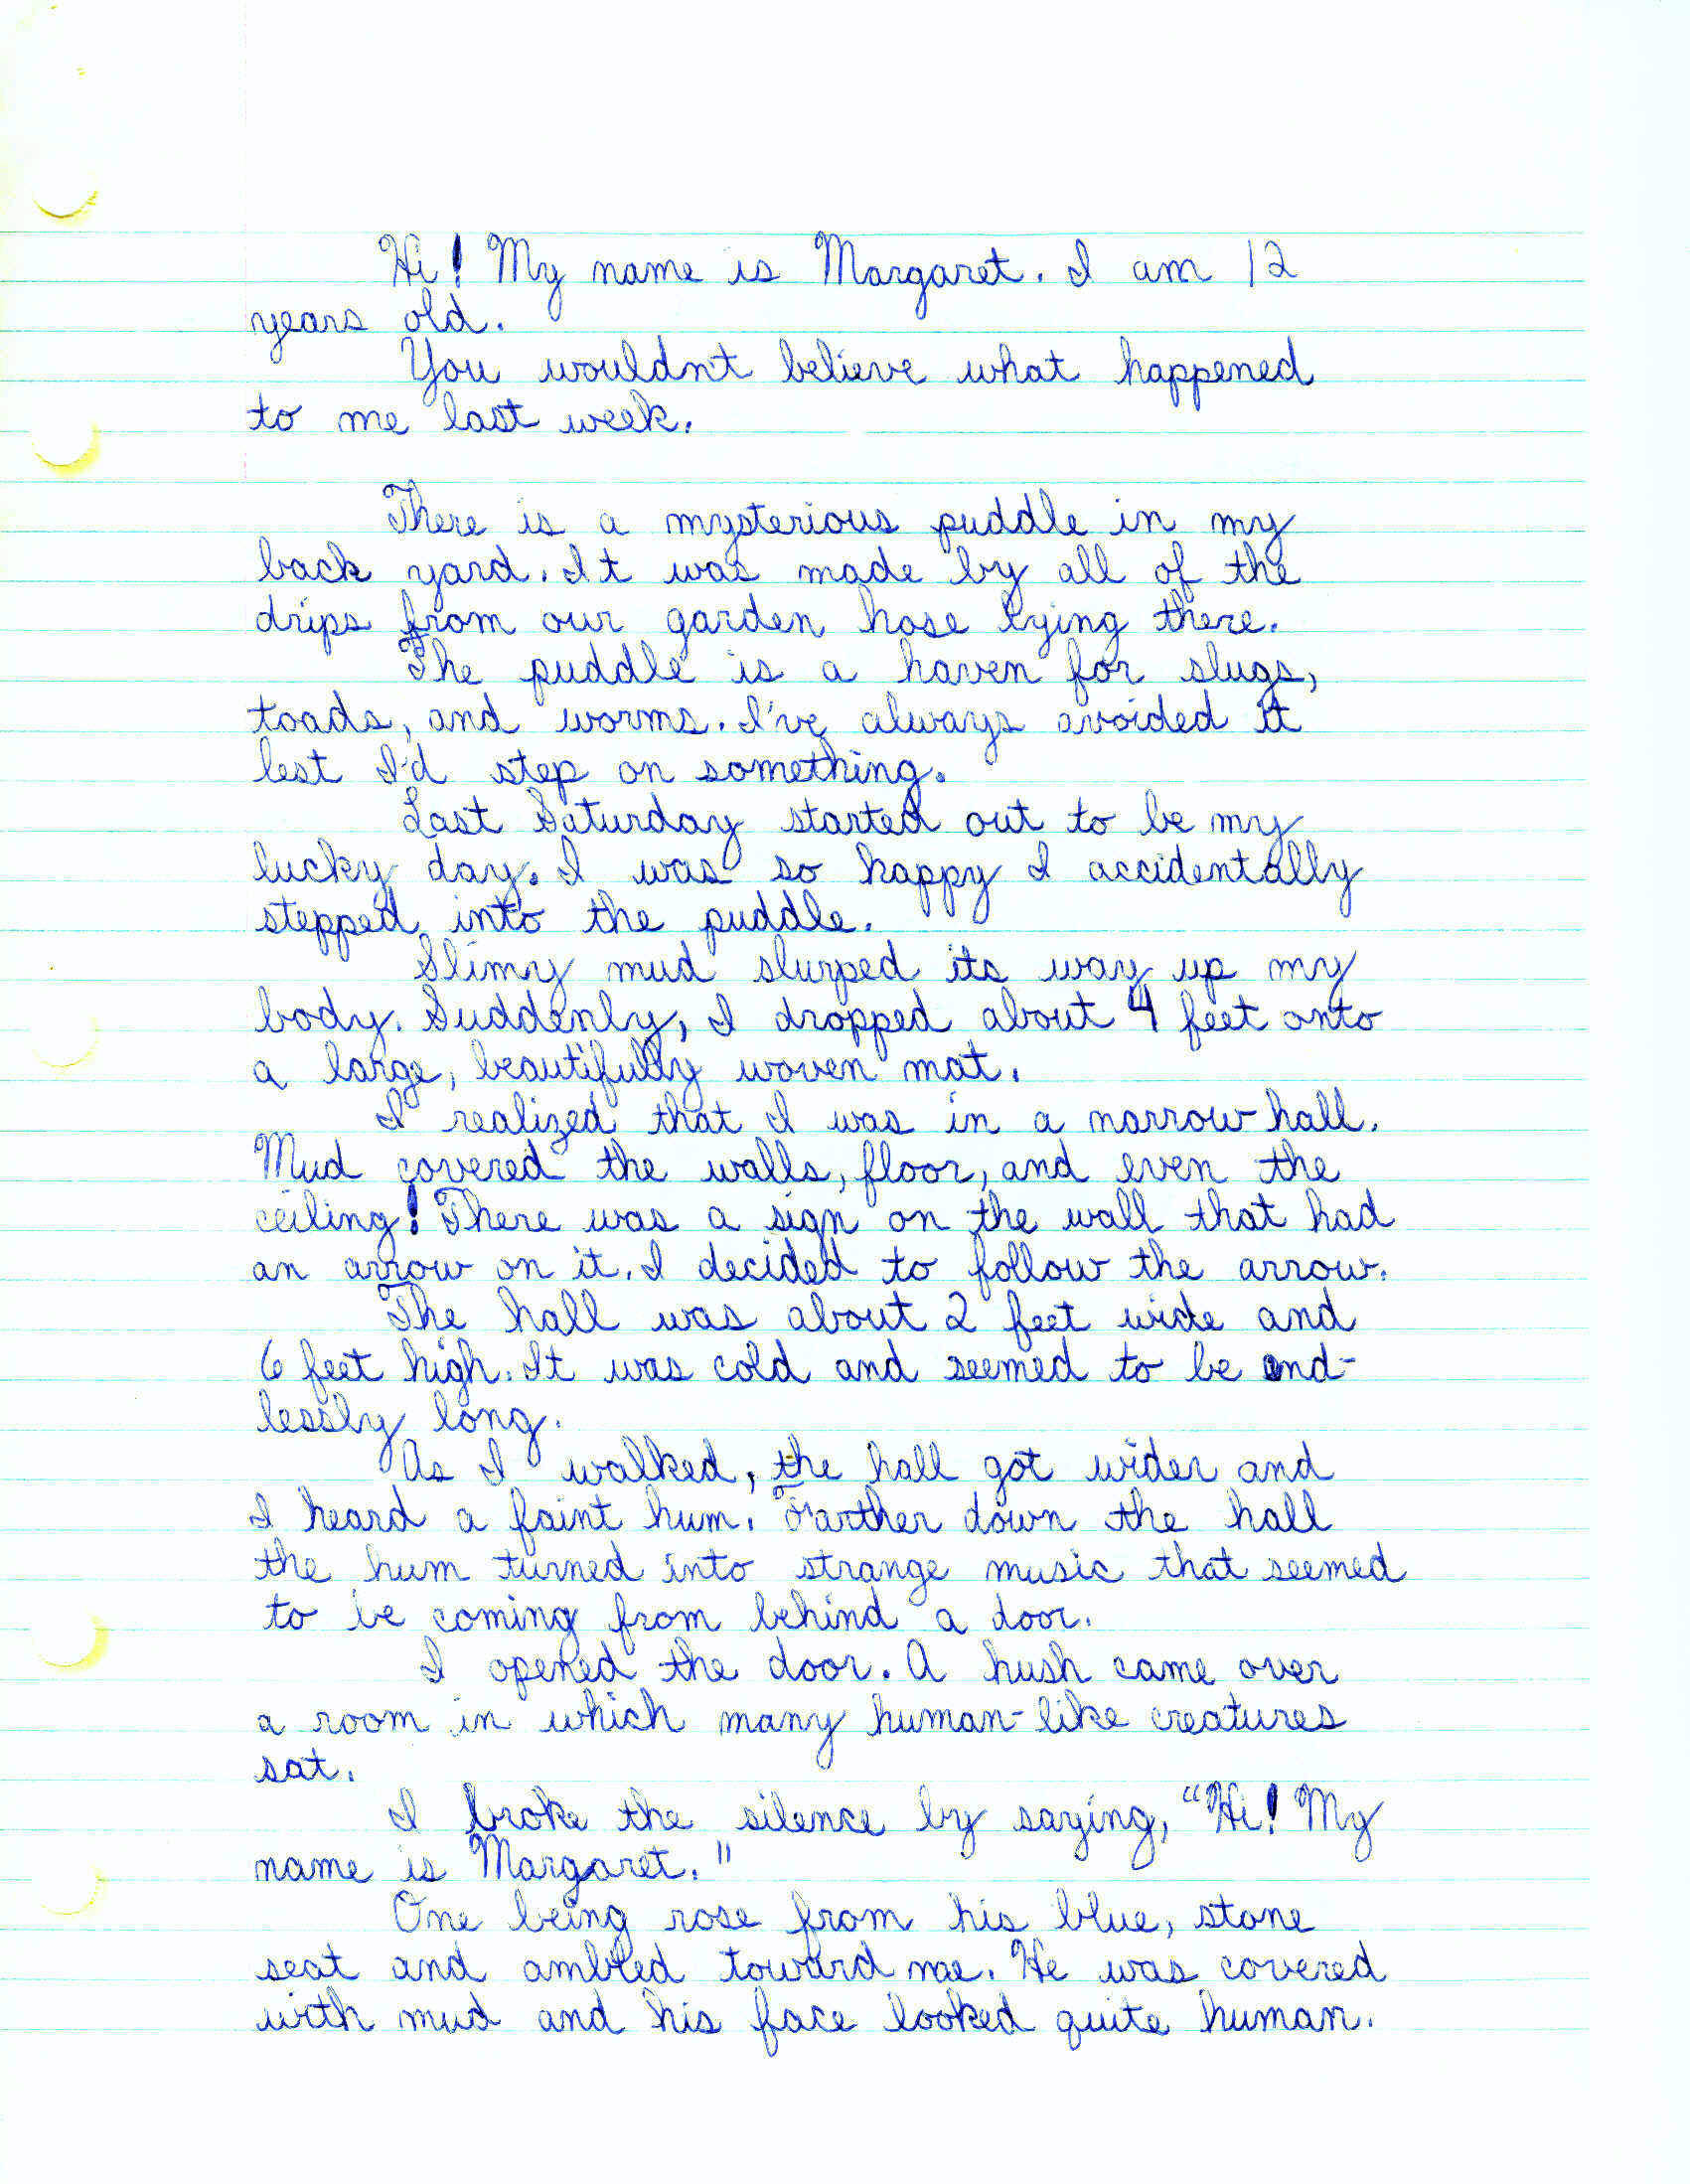 Hi! My name is Margaret. I am 12
years old.
You wouldn't believe what happened
to me last week.
There is a mysterious puddle in my
back yard. It was made by all of the
drips from our garden hose lying there.
The puddle is a haven for slugs,
toads, and worms. I've always avoided it
lest I'd step on something.
Last Saturday started out to be my
lucky day. I was so happy I accidentally
stepped into the puddle.
Slimy mud slurped its way up my
body. Suddenly, I dropped about 4 feet onto
a large, beautifully woven mat.
I realized that I was in a narrow hall.
Mud covered the walls, floor, and even the
ceiling! There was a sign on the wall that had
an arrow on it. I decided to follow the arrow.
The hall was about 2 feet wide and
6 feet high. It was cold and seemed to be end-
lessly long.
As I walked, the hall got wider and
I heard a faint hum. Farther down the hall
the hum turned into strange music that seemed
to be coming from behind a door.
I opened the door. A hush came over
a room in which many human-like creatures
sat.
I broke the silence by saying, "Hi! My
name is Margaret."
One being rose from his blue, stone
seat and ambled toward me. He was covered
with mud and his face looked quite human.